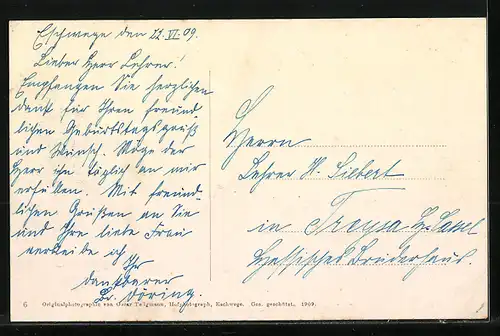 Eschwege den 12. VI. 09.
Lieber Herr Lehrer!
Empfangen Sie herzlichen
Dank für Ihren freund-
lichen Geburtstagsgruß
und Wunsch. Möge der
Herr ihn täglich an mir
erfüllen. Mit freund-
lichen Grüßen an Sie
und Ihre liebe Frau
verbleibe ich
Ihr
dankbarer
Br. Döring.
Herrn
Lehrer H. Siebert
in Treysa Bz. Cassel
Hessisches Bruderhaus
6 Originalphotographie von Oscar Tellgmann, Hofphotograph, Eschwege. Ges. geschützt, 1909.